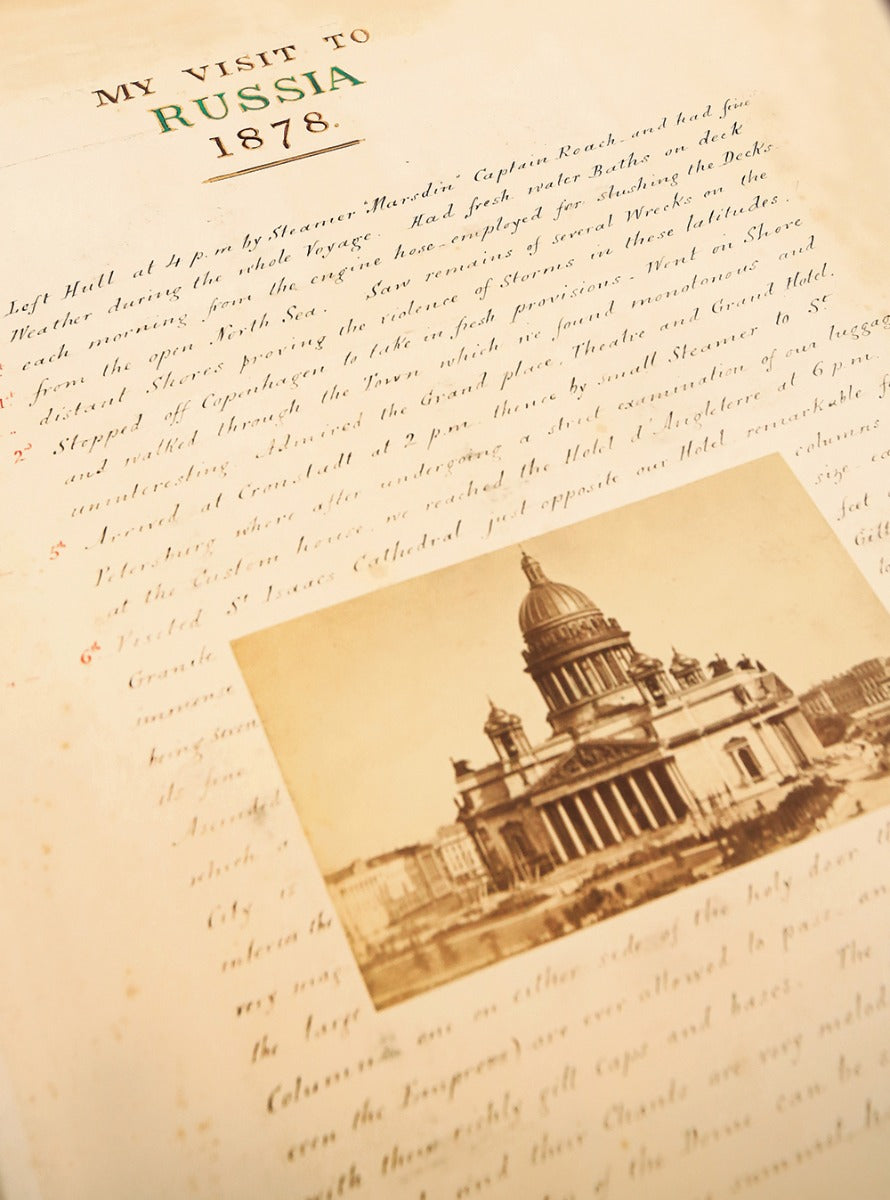 MY VISIT TO
RUSSIA
1878.
Left Hull at 4 p.m by Steamer "Marsdin" Captain Roach and had fine
Weather during the whole Voyage. Had fresh water Baths on deck
each morning from the engine hose employed for slushing the Decks
from the open North Sea. Saw remains of several Wrecks on the
distant Shores proving the violence of Storms in these latitudes.
2d Stopped off Copenhagen to take in fresh provisions - Went on Shore
and walked through the Town which we found monotonous and
uninteresting. Admired the Grand place, Theatre and Grand Hotel.
5th Arrived at Cronstadt at 2 p.m. thence by small Steamer to St
Petersburg where after undergoing a strict examination of our luggag
at the Custom house, we reached the Hotel d'Angleterre at 6 p.m.
6th Visited St Isaacs Cathedral just opposite our Hotel remarkable fo
Granite columns
immense size
being seven feet
its fine Gilt
Ascended
which a
City is
interior the
very mag
the large side of the holy door
Column one on either ever allowed to pass
even the Empress) are caps and bases. The
with their richly gilt Chants are very melod
and their of the Dome can be
summit